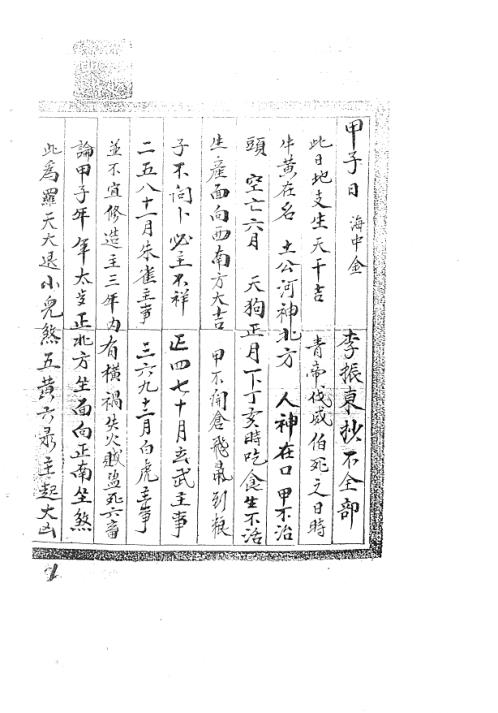 甲子日 海中金 李振東抄不全部
此日地支生天干吉 青帝伐威伯死之日時
牛黄在名 土公河神北方 人神在口 甲不治
頭 空亡六月 天狗正月下丁亥時吃食生不活
生産面向西南方大吉 甲不開倉飛鼠到粮
子不问卜必主不祥 正四七十月玄武主事
二五八十一月朱雀主事 三六九十二月白虎主事
並不宜修造主三年内有橫禍失火賊盜死六畜
論甲子年年太岁正北方坐面向正南坐煞
此爲羅天大退小兒煞五黄六彔主起大凶